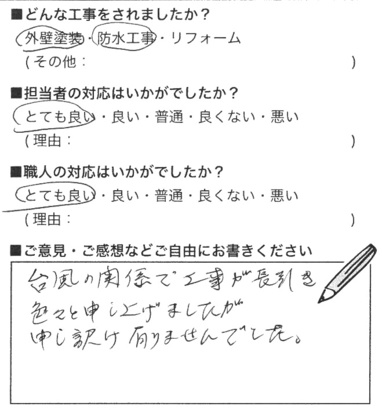 ■どんな工事をされましたか？
外壁塗装・防水工事・リフォーム
(その他： )
■担当者の対応はいかがでしたか？
とても良い・良い・普通・良くない・悪い
(理由： )
■職人の対応はいかがでしたか？
とても良い・良い・普通・良くない・悪い
(理由： )
■ご意見・ご感想などご自由にお書きください
台風の関係で工事が長引き
色々と申し上げましたが
申し訳け有りませんでした。